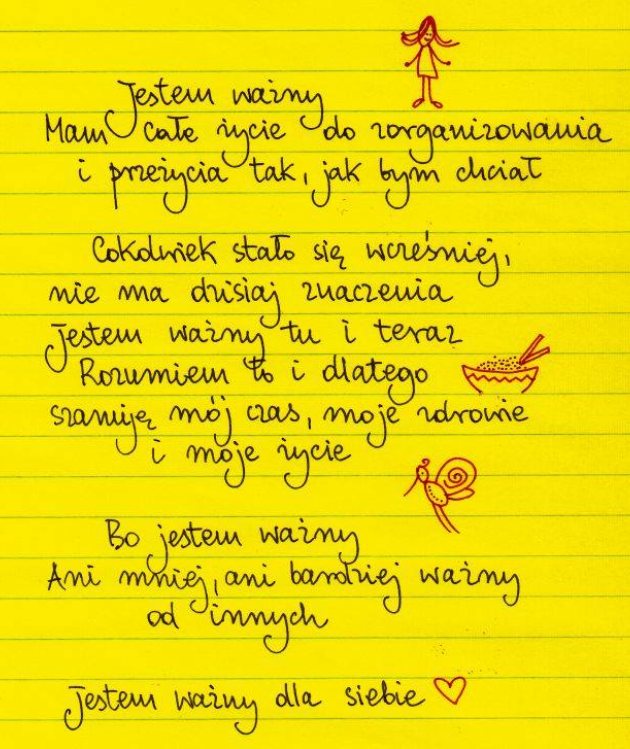 Jestem ważny
Mam całe życie do zorganizowania
i przeżycia tak, jak bym chciał
Cokolwiek stało się wcześniej,
nie ma dzisiaj znaczenia
Jestem ważny tu i teraz
Rozumiem to i dlatego
szanuję mój czas, moje zdrowie
i moje życie
Bo jestem ważny
Ani mniej, ani bardziej ważny
od innych
Jestem ważny dla siebie